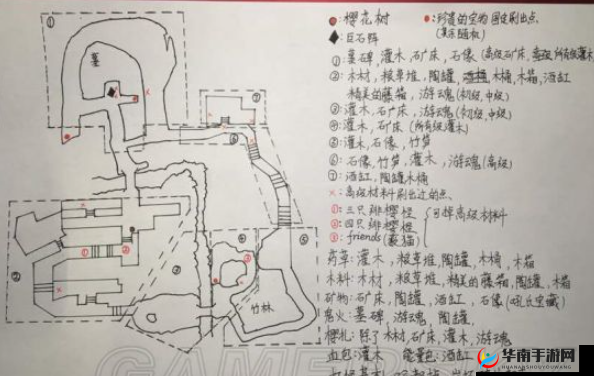 :樱花树
:珍贵的宝物 固定刷出点
(其余随机)
:巨石阵
①:墓碑,灌木,石矿床,石像(高级石矿床,所有级灌木)
②:木材,粮草堆,陶罐,木桶,木箱,酒缸
精美的藤箱,游魂(初级,中级)
③:灌木,石矿床,游魂(初级,中级)
④:灌木,石矿床(所有级灌木)
⑤:灌木,石像,竹笋
⑥:石像,竹笋,灌木,游魂(高级)
⑦:酒缸,陶罐,木桶
×:高级材料刷出过的点.
①:三只绯樱烃
②:四只绯樱烃
③:friends(蓑猫)
可掉高级材料
药草:灌木,粮草堆,陶罐,木桶,木箱
木料:木材,粮草堆,精美的藤箱,陶罐,木箱
矿物:石矿床,陶罐,酒缸,石像(吼丘宝藏)
鬼火:墓碑,游魂,陶罐,
樱札:除了木材,石矿床,灌木,游魂
血包:灌木 能量包:酒缸
①
墓
×
⑦
⑥
②
①
②
④
③
⑤
竹林
③
GAME
华南手游网
HUANANSHOUYOUWANG